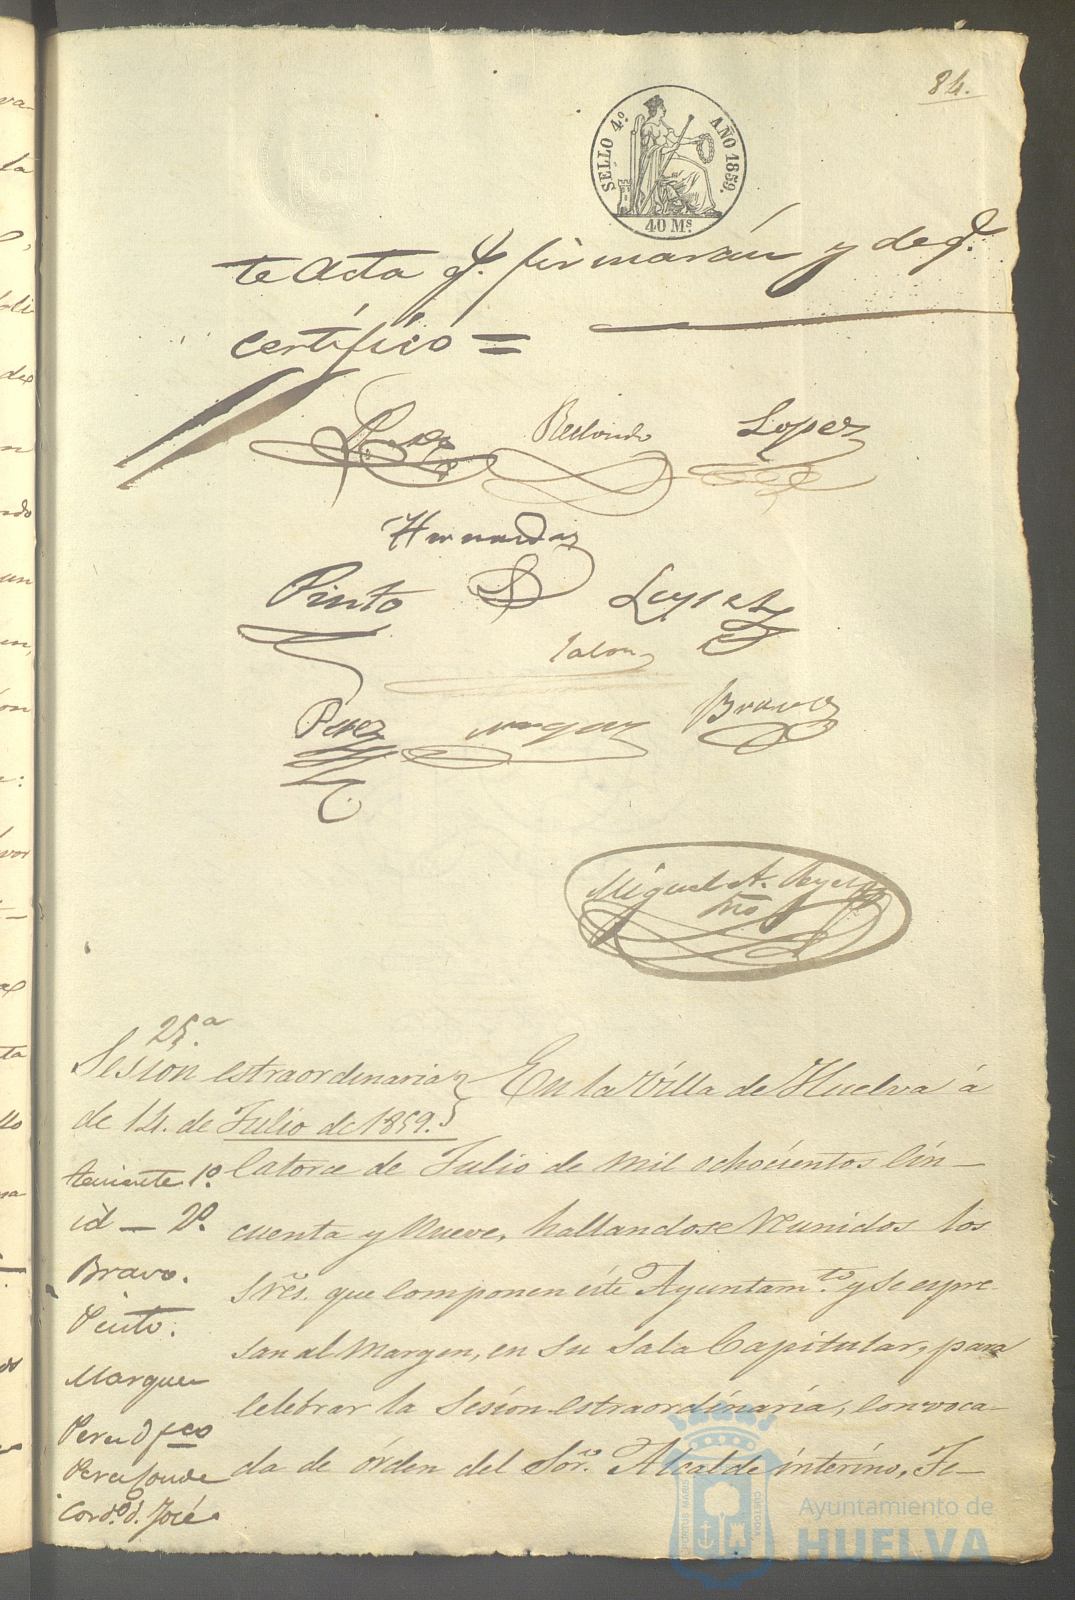 84.
SELLO 4.º AÑO 1859.
40 Ms.
te acta q.e firmarán y de q.e
certífíco =
Redondo Lopez
Hernandez
Pinto Lopez
Perez Bravo
Miguel A.
25.ª
Sesíon estraordinaria
de 14. de Julio de 1859.
En la Villa de Huelva á
Catorce de Julio de mil ochocientos Cin-
cuenta y Nueve, hallandose Reunidos los
Sres. que Componen éste Ayuntam.to y se espre-
san al Margen, en su Sala Capitular, para
Celebrar la Sesíon estraordínaría, Convoca-
da de órden del Sor. Alcalde interino, Te-
teniente 1.º
id — 2.º
Bravo.
Pinto.
Marquez
Perez D. Fco
Perez Conde
Cord.º d. José
Ayuntamiento de
HUELVA